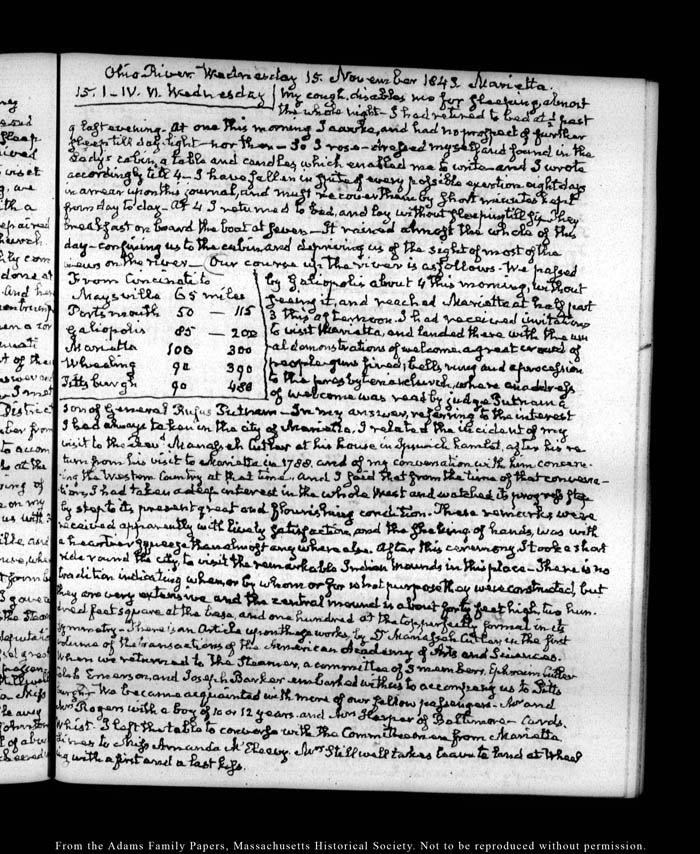 Ohio River Wednesday 15. November 1843. Marietta
15. I–IV. VI. Wednesday
My cough disables me for sleeping, almost
the whole night — I had retired to bed at ½ past
9 last evening. At one this morning I awoke, and had no prospect of further
sleep till day-light — nor then — So I rose — dressed myself and found in the
Lady's cabin, a table and candles which enabled me to write and I wrote
accordingly till 4 — I have fallen in spite of every possible exertion eight days
in arrear upon this journal, and must recover them by short minutes kept
from day to day — At 4 I returned to bed, and lay without sleeping till six. They
breakfast on board the boat at seven — It rained almost the whole of this
day — confining us to the cabin and depriving us of the sight of most of the
views on the river — Our course up the river is as follows. We passed
From Cincinnati to
Maysville 65 miles
Portsmouth 50 — 115
Galiopolis 85 — 200
Marietta 100 300
Wheeling 90 390
Pittsburgh 90 480
by Galiopolis about 4 this morning, without
seeing it, and reached Marietta at half past
3 this afternoon. I had received invitations
to visit Marietta, and landed there with the usu
al demonstrations of welcome, a great crowd of
people, guns fired, bells rung and a procession
to the presbyterian church, where an address
of welcome was read by judge Putnam a
son of General Rufus Putnam — In my answer, referring to the interest
I had always taken in the city of Marietta, I related the incident of my
visit to the Revd. Manasseh Cutler at his house in Ipswich hamlet, after his re-
turn from his visit to Marietta in 1788. and of my conversation with him concern-
ing the Western Country at that time. And I said that from the time of that conversa-
tion, I had taken a deep interest in the whole West and watched its progress step
by step to its present great and flourishing condition. These remarks were
received apparently with lively satisfaction, and the shaking of hands, was with
a heartier squeeze than almost any where else. After this ceremony I took a short
ride round the city, to visit the remarkable Indian mounds in this place — There is no
tradition indicating when or by whom or for what purpose they were constructed, but
they are very extensive and the central mound is about forty feet high, two hun-
dred feet square at the base, and one hundred at the top, perfectly formed in its
symmetry. There is an Article upon these works, by Dr Manasseh Cutler in the first
volume of the transactions of the American Academy of Arts and Sciences.
When we returned to the Steamer, a committee of 3 members, Ephraim Cutler
Caleb Emerson, and Joseph Barker embarked with us to accompany us to Pitts
burgh. We became acquainted with more of our fellow passengers. Mr and
Mrs Rogers with a boy of 10 or 12 years. and Mrs Harper of Baltimore — Cards.
Whist. I left the table to converse with the Committee on from Marietta
Lines to Miss Amanda McElevy. Mrs Stillwell takes leave to land at Wheel
ing with a first and a last kiss.
From the Adams Family Papers, Massachusetts Historical Society. Not to be reproduced without permission.